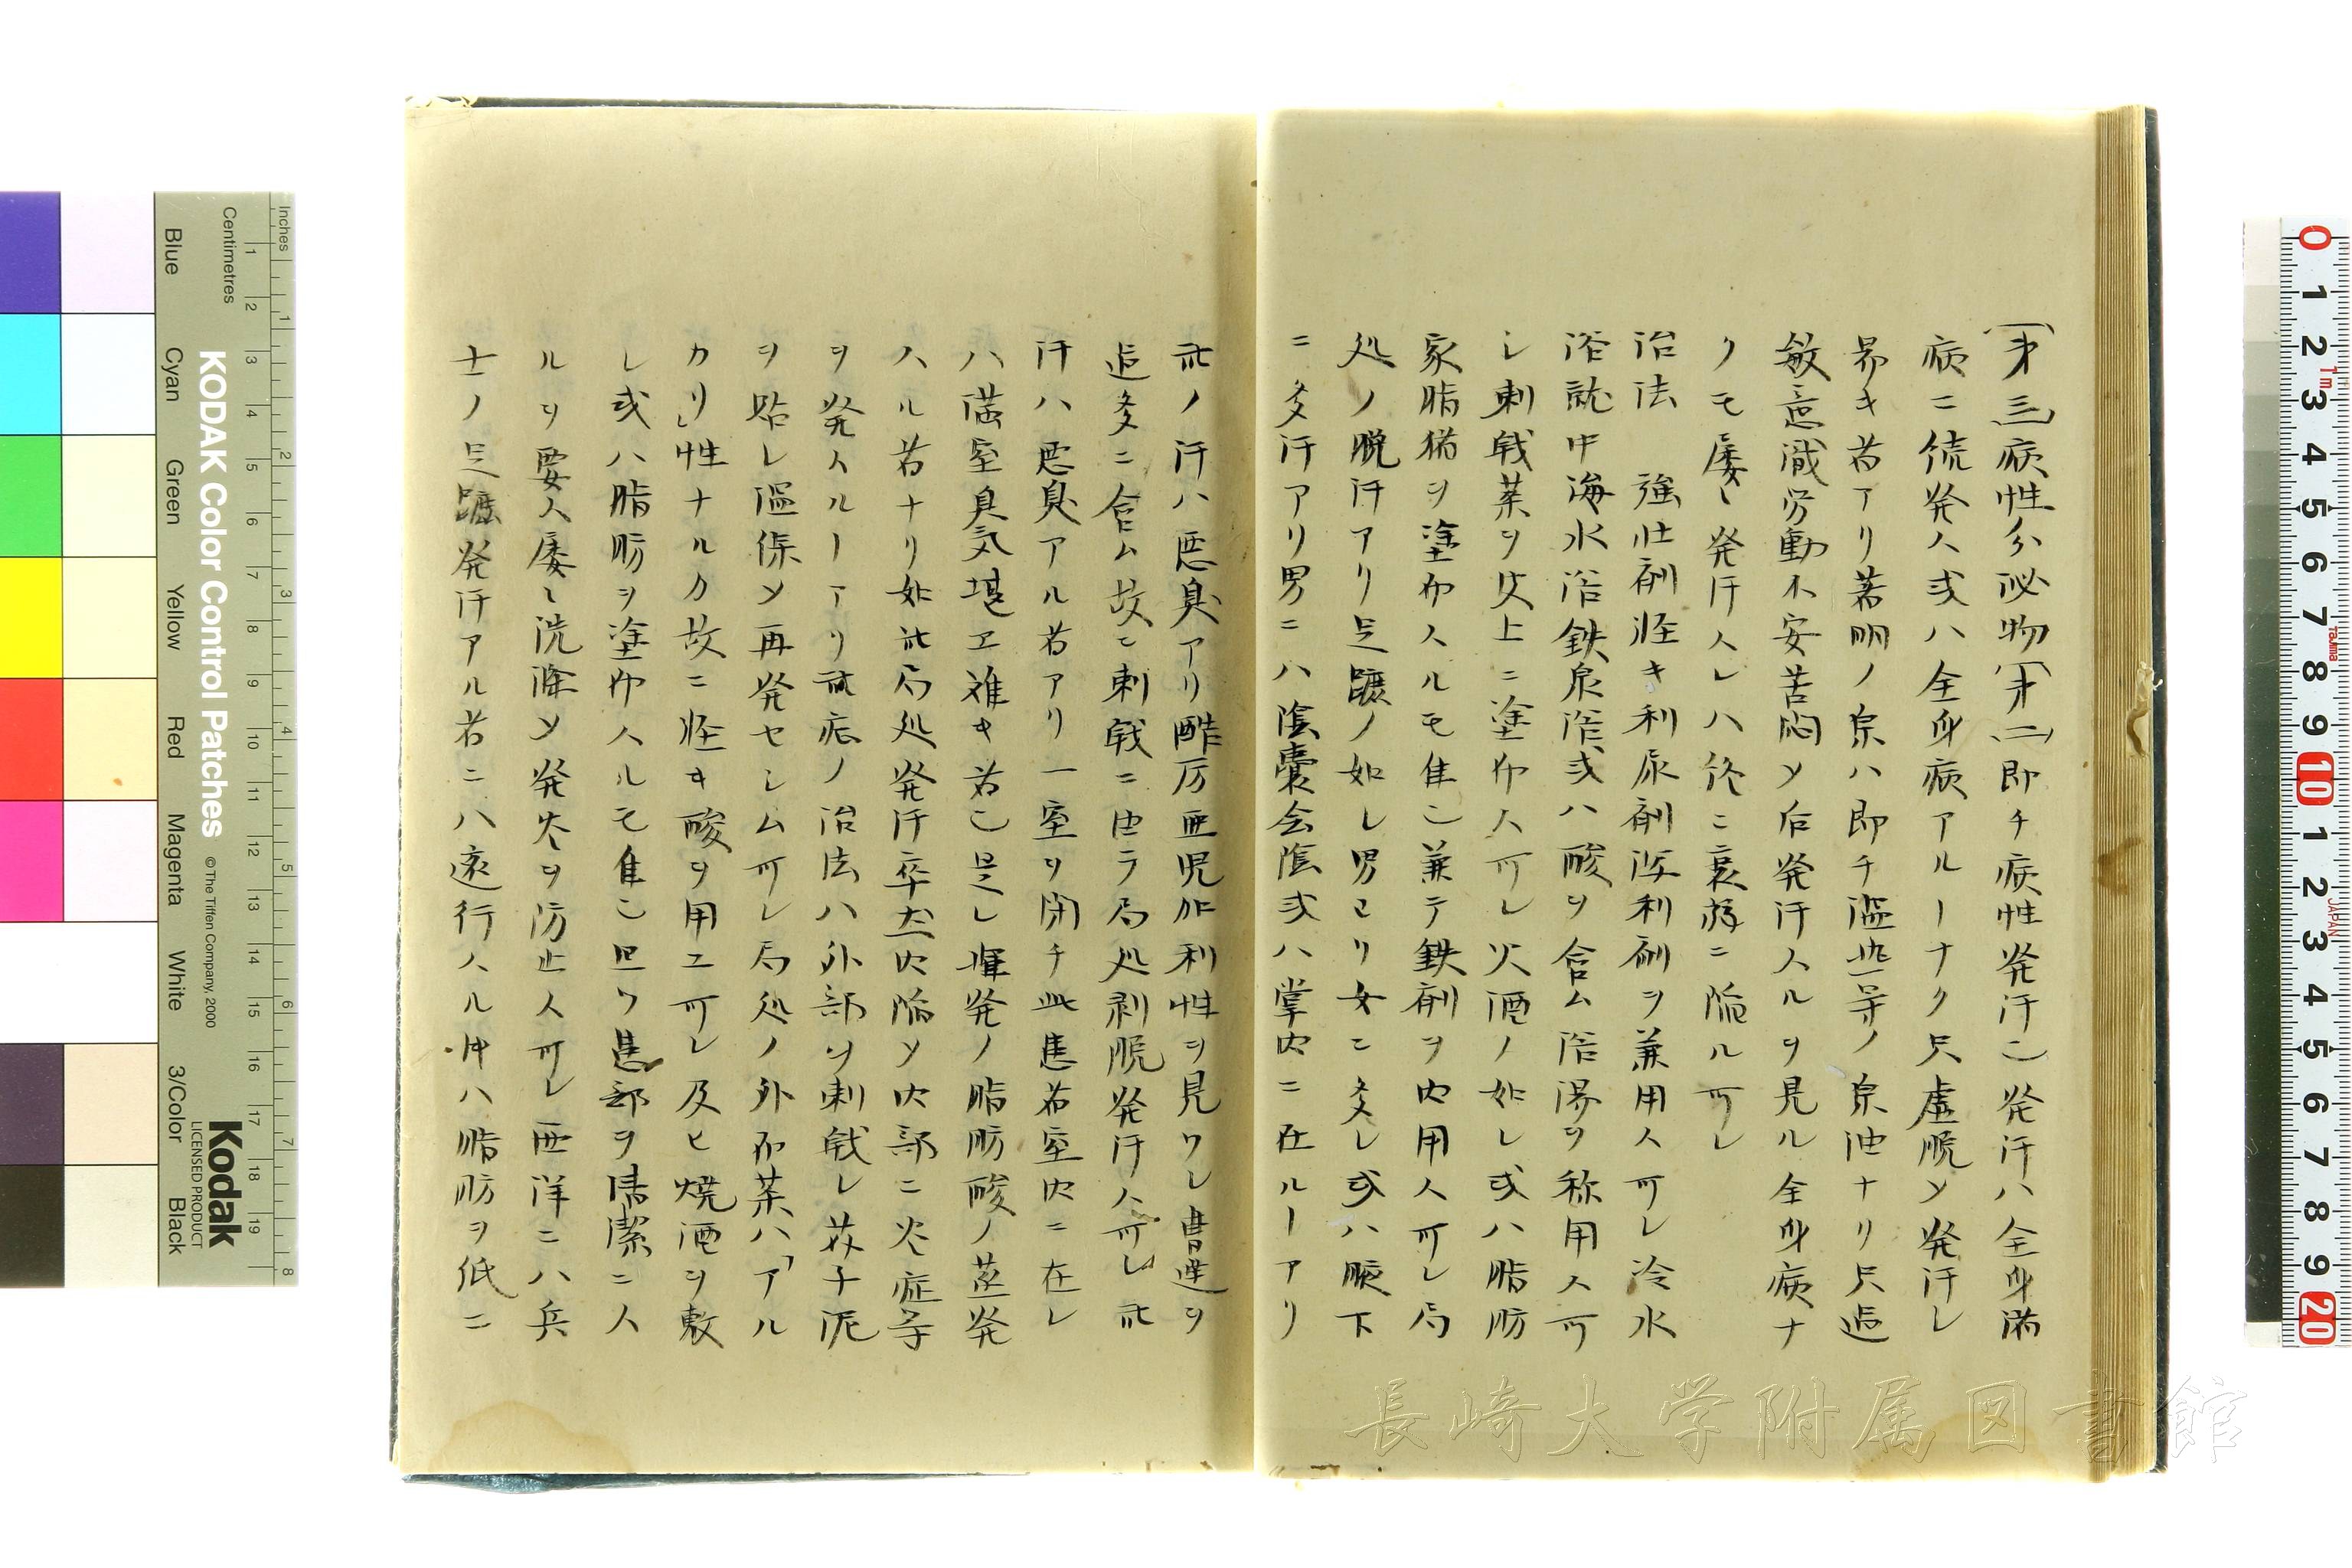 (第三)病性分泌物(第二)即チ病性発汗〆発汗ハ全身諸
病ニ続発ス或ハ全身病アルヿナク只虚脱〆発汗シ
易キ者アリ著明ノ原ハ即チ温熱等ノ原由ナリ只過
敏意識労動不安苦悶〆后発汗スルヲ見ル全身病ナ
クモ屡〻発汗スレハ終ニ衰弱ニ陥ル可シ
治法 強壮剤軽キ利尿剤瀉利剤ヲ兼用ス可シ冷水
浴就中海水浴鉄泉浴或ハ酸ヲ含ム浴湯ヲ称用ス可
シ刺戟薬ヲ皮上ニ塗布ス可シ火酒ノ如シ或ハ脂肪
家脂猪ヲ塗布スルモ佳〆兼テ鉄剤ヲ内用ス可シ局
処ノ脱汗アリ足蹠ノ如シ男ヨリ女ニ多シ或ハ腋下
ニ多汗アリ男ニハ陰嚢会陰或ハ掌内ニ在ルヿアリ
此ノ汗ハ悪臭アリ酷厉亜児加利性ヲ見ワシ曹達ヲ
過多ニ含ム故ニ刺戟ニ由テ局処剥脱発汗ス可シ此
汗ハ悪臭アル者アリ一室ヲ閉チ此患者室内ニ在レ
ハ満室臭気堪エ難キ者〆是レ揮発ノ脂肪酸ノ蒸発
スル者ナリ如此局処発汗卒然内陥〆内部ニ炎症等
ヲ発スルヿアリ此症ノ治法ハ外部ヲ刺戟シ芥子泥
ヲ貼シ温保〆再発セシム可シ局処ノ外布薬ハ「アル
カリ」性ナルカ故ニ軽キ酸ヲ用エ可シ及ヒ焼酒ヲ敷
シ或ハ脂肪ヲ塗布スルモ佳〆且ツ患部ヲ清潔ニス
ルヲ要ス屡〻洗滌〆発炎ヲ防止ス可シ西洋ニハ兵
士ノ足蹠発汗アル者ニハ遠行スル時ハ脂肪ヲ低ニ
長崎大学附属図書館
KODAK Color Control Patches
© The Tiffen Company, 2000
Kodak
LICENSED PRODUCT
Inches
Centimetres
Blue
Cyan
Green
Yellow
Red
Magenta
White
3/Color
Black